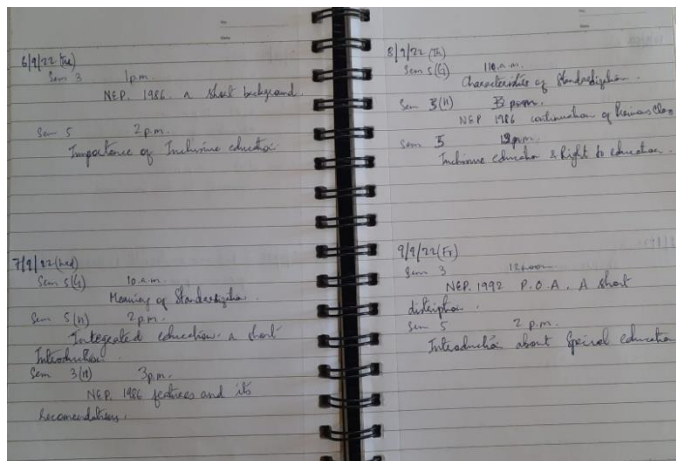 6/9/22 (Tue)
Sem 3 1 p.m.
NEP. 1986. a short background.
Sem 5 2 p.m.
Importance of Inclusive education
7/9/22 (Wed)
Sem 5(G) 10 a.m.
Meaning of Standardization.
Sem 5(H) 2 p.m.
Integrated education. a short
Introduction.
Sem 3(H) 3 p.m.
NEP. 1986 features and its
Recomendations.
8/9/22 (Th)
Sem 5(G) 11 a.m.
Characteristics of Standardization.
Sem 3(H)
NEP 1986 continuation of Previous Class
Sem 5
Inclusive education & Right to education.
9/9/22 (Fr)
Sem 3 12 noon.
NEP. 1992 P.O.A. A short
Sem 5 2 p.m.
Introduction about Special education